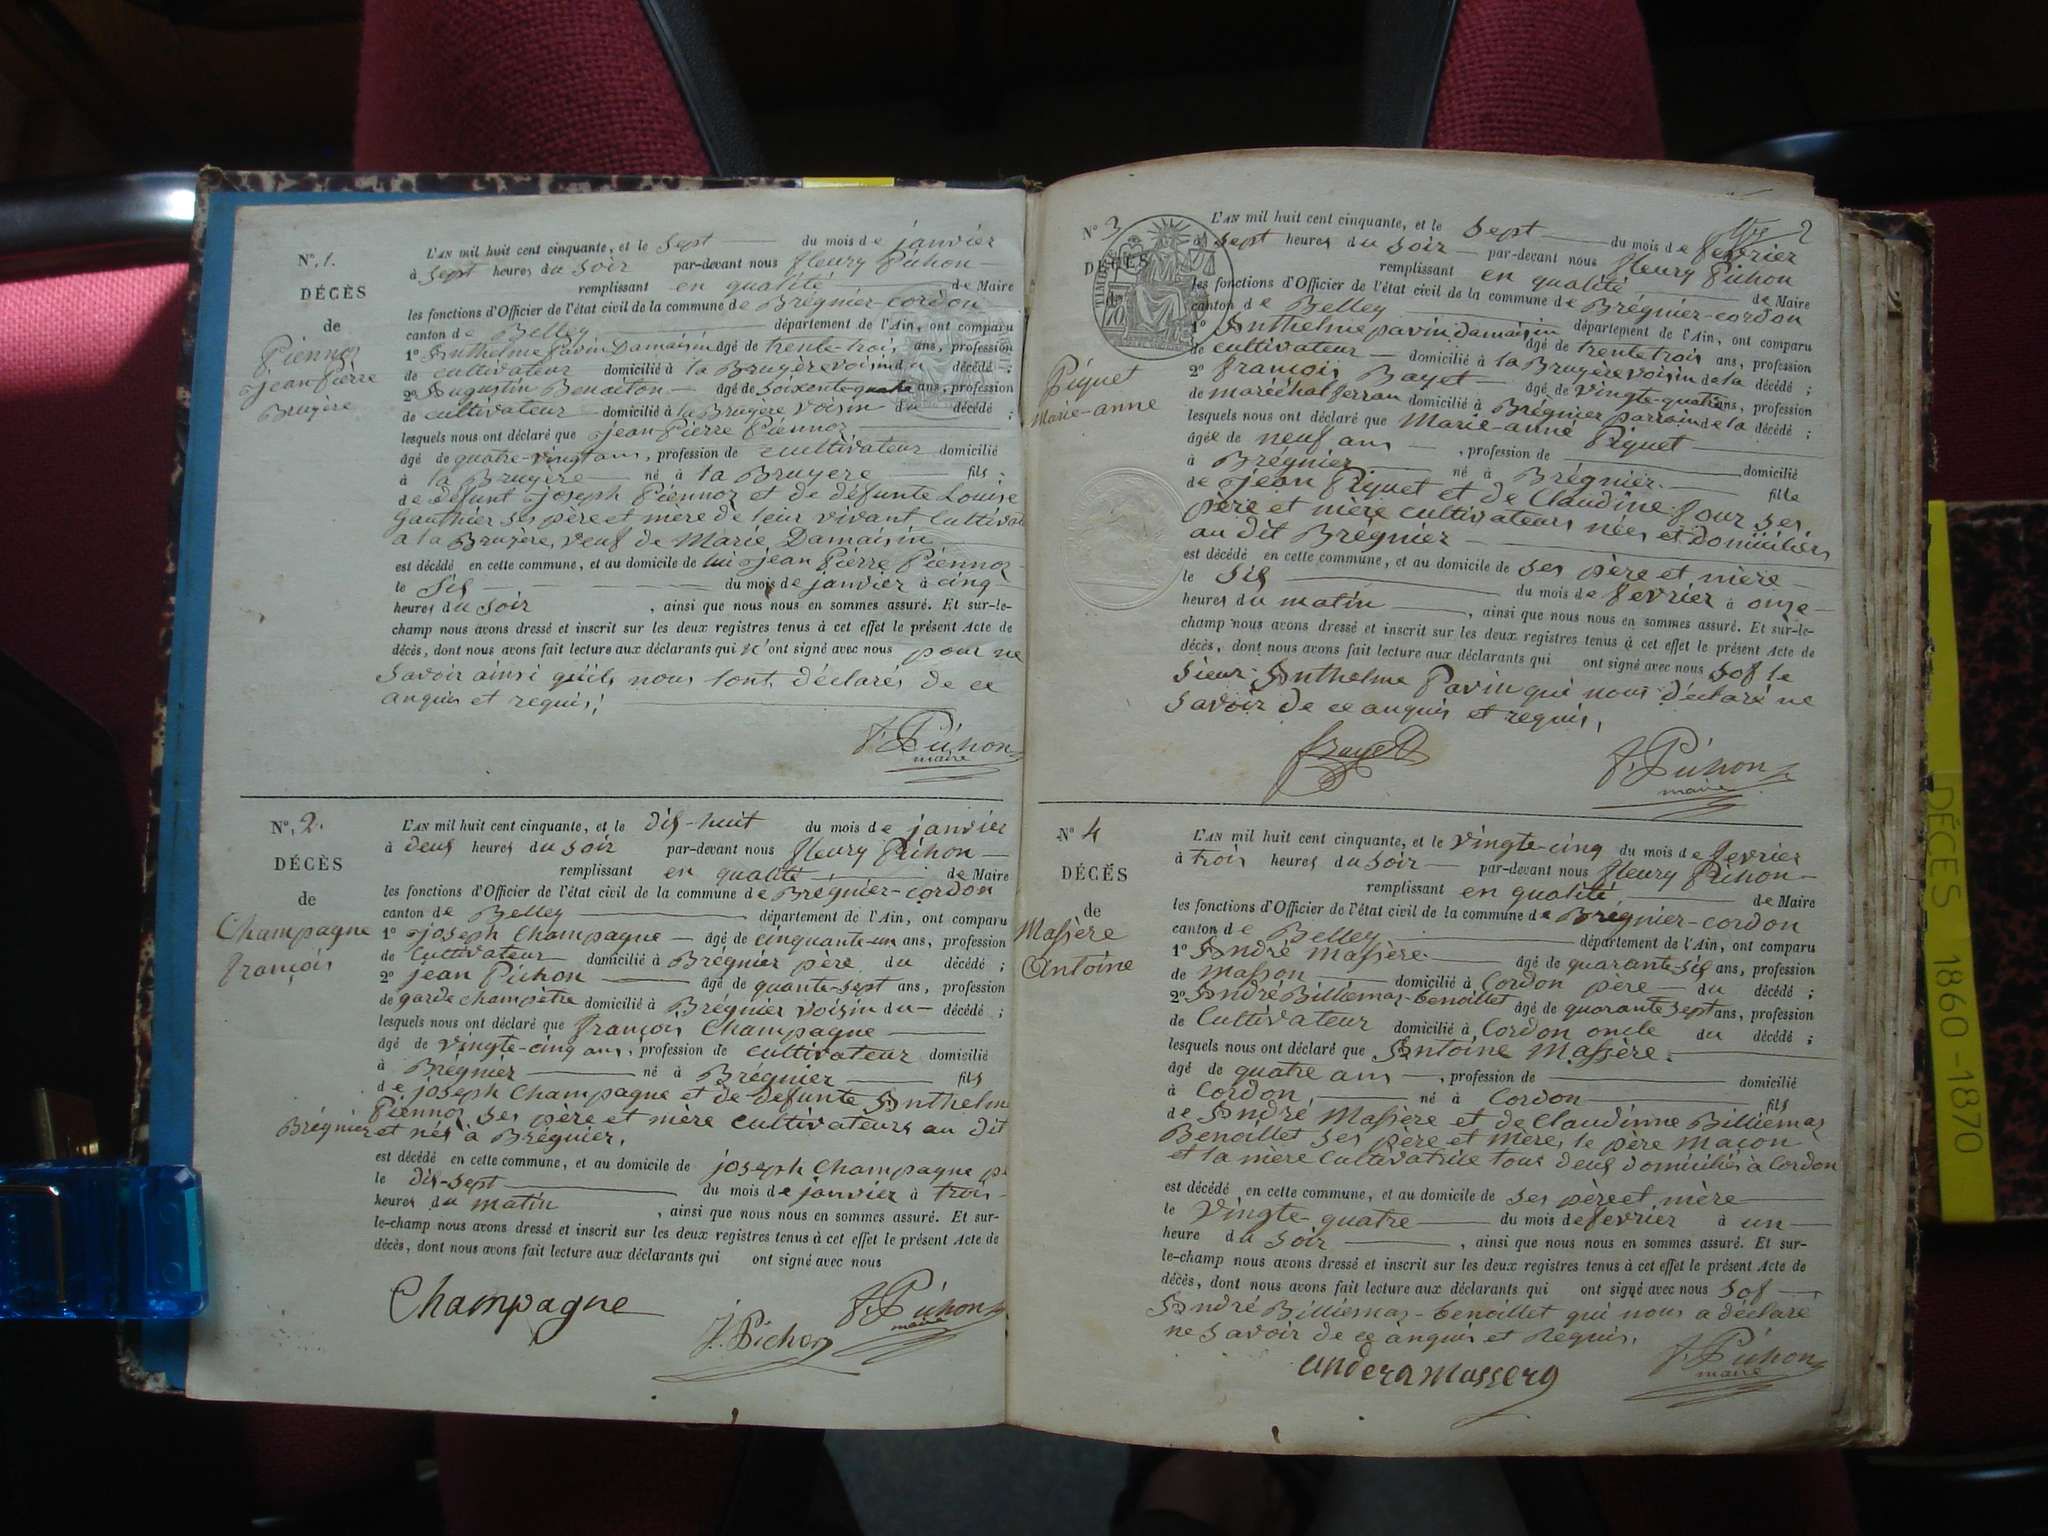 N°. 1.
DÉCÈS
de
Piennoz
Jean Pierre
Bruyère
L'AN mil huit cent cinquante, et le Sept du mois de janvier
à Sept heures du Soir par-devant nous fleury Pichon
remplissant en qualité de Maire
les fonctions d'Officier de l'état civil de la commune de Brégnier-cordon
canton de Belley département de l'Ain, ont comparu
1° Anthelme Pavin Damaisin âgé de trente-trois ans, profession
de cultivateur domicilié à la Bruyère voisin du décédé ;
2° Augustin Benoiton âgé de soixente quatre ans, profession
de cultivateur domicilié à la Bruyère voisin du décédé ;
lesquels nous ont déclaré que jean Pierre Piennoz
âgé de quatre-vingt ans, profession de cultivateur domicilié
à la Bruyere né à la Bruyere fils ;
de défunt joseph Piennoz et de défunte Louise
Gauthier ses père et mère de leur vivant Cultivat
a la Bruyère, veuf de Marie Damaisin
est décédé en cette commune, et au domicile de lui jean Pierre Piennoz
le Six du mois de janvier à cinq
heures du soir , ainsi que nous nous en sommes assuré. Et sur-le-
champ nous avons dressé et inscrit sur les deux registres tenus à cet effet le présent Acte de
décès, dont nous avons fait lecture aux déclarants qui n'ont signé avec nous pour ne
Savoir ainsi qu'ils nous l'ont déclarés de ce
anquis et requis.
f. Pichon
maire
N°. 2.
DÉCÈS
de
Champagne
françois
L'AN mil huit cent cinquante, et le dix-huit du mois de janvier
à deux heures du soir par-devant nous fleury Pichon
remplissant en qualité de Maire
les fonctions d'Officier de l'état civil de la commune de Brégnier-cordon
canton de Belley département de l'Ain, ont comparu
1° joseph Champagne âgé de cinquante-un ans, profession
de Cultivateur domicilié à Brégnier père du décédé ;
2° jean Pichon âgé de quante-sept ans, profession
de garde champêtre domicilié à Brégnier voisin du décédé ;
lesquels nous ont déclaré que françois Champagne
âgé de vingte-cinq ans, profession de cultivateur domicilié
à Brégnier né à Brégnier fils
de joseph Champagne et de defunte Anthelm
Piennoz ses père et mère cultivateurs au dit
Brégnier et nés à Brégnier.
est décédé en cette commune, et au domicile de joseph Champagne pe
le dix-sept du mois de janvier à trois
heures du matin , ainsi que nous nous en sommes assuré. Et sur-
le-champ nous avons dressé et inscrit sur les deux registres tenus à cet effet le présent Acte de
décès, dont nous avons fait lecture aux déclarants qui ont signé avec nous
Champagne
J. Pichon
f. Pichon
maire
2
N° 3
DÉCÈS
de
Piquet
Marie-anne
L'AN mil huit cent cinquante, et le Sept du mois de fevrier
à Sept heures du soir par-devant nous fleury Pichon
remplissant en qualité de Maire
les fonctions d'Officier de l'état civil de la commune de Brégnier-cordon
canton de Belley département de l'Ain, ont comparu
1° Anthelme pavin damaisin âgé de trente trois ans, profession
de cultivateur domicilié à la Bruyère voisin de la décédé ;
2° françois Bayet âgé de vingte-quatre ans, profession
de maréchal ferran domicilié à Brégnier parrain de la décédé ;
lesquels nous ont déclaré que Marie-anne Piquet
âgée de neuf ans , profession de domicilié
à Brégnier né à Brégnier fille
de jean Piquet et de Claudine four ses
père et mère cultivateurs nées et Domiciliés
au dit Brégnier
est décédé en cette commune, et au domicile de ses père et mère
le Six du mois de fevrier à onze
heures du matin , ainsi que nous nous en sommes assuré. Et sur-le-
champ nous avons dressé et inscrit sur les deux registres tenus à cet effet le présent Acte de
décès, dont nous avons fait lecture aux déclarants qui ont signé avec nous sof le
Sieur Anthelme Pavin qui nous déclaré ne
Savoir de ce anquis et requis,
f Bayet
f. Pichon
maire
N° 4
DÉCÈS
de
Massère
Antoine
L'AN mil huit cent cinquante, et le vingte-cinq du mois de fevrier
à trois heures du soir par-devant nous fleury Pichon
remplissant en qualité de Maire
les fonctions d'Officier de l'état civil de la commune de Brégnier-cordon
canton de Belley département de l'Ain, ont comparu
1° André Massère âgé de quarante-six ans, profession
de Masson domicilié à Cordon père du décédé ;
2° André Billiemaz-benoillet âgé de quarante sept ans, profession
de Cultivateur domicilié à Cordon oncle du décédé ;
lesquels nous ont déclaré que Antoine Massère
âgé de quatre ans , profession de domicilié
à Cordon né à Cordon fils
de André Massère et de Claudinne Billiemaz
Benoillet ses père et mère, le père Maçon
et la mère Cultivatrice tous deux domiciliés à Cordon
est décédé en cette commune, et au domicile de ses père et mère
le vingte quatre du mois de fevrier à un
heure du soir , ainsi que nous nous en sommes assuré. Et sur-
le-champ nous avons dressé et inscrit sur les deux registres tenus à cet effet le présent Acte de
décès, dont nous avons fait lecture aux déclarants qui ont signé avec nous sof
André Billiemaz-benoillet qui nous a déclaré
ne savoir de ce anquis et Requis.
f. Pichon
maire
DÉCES 1860-1870